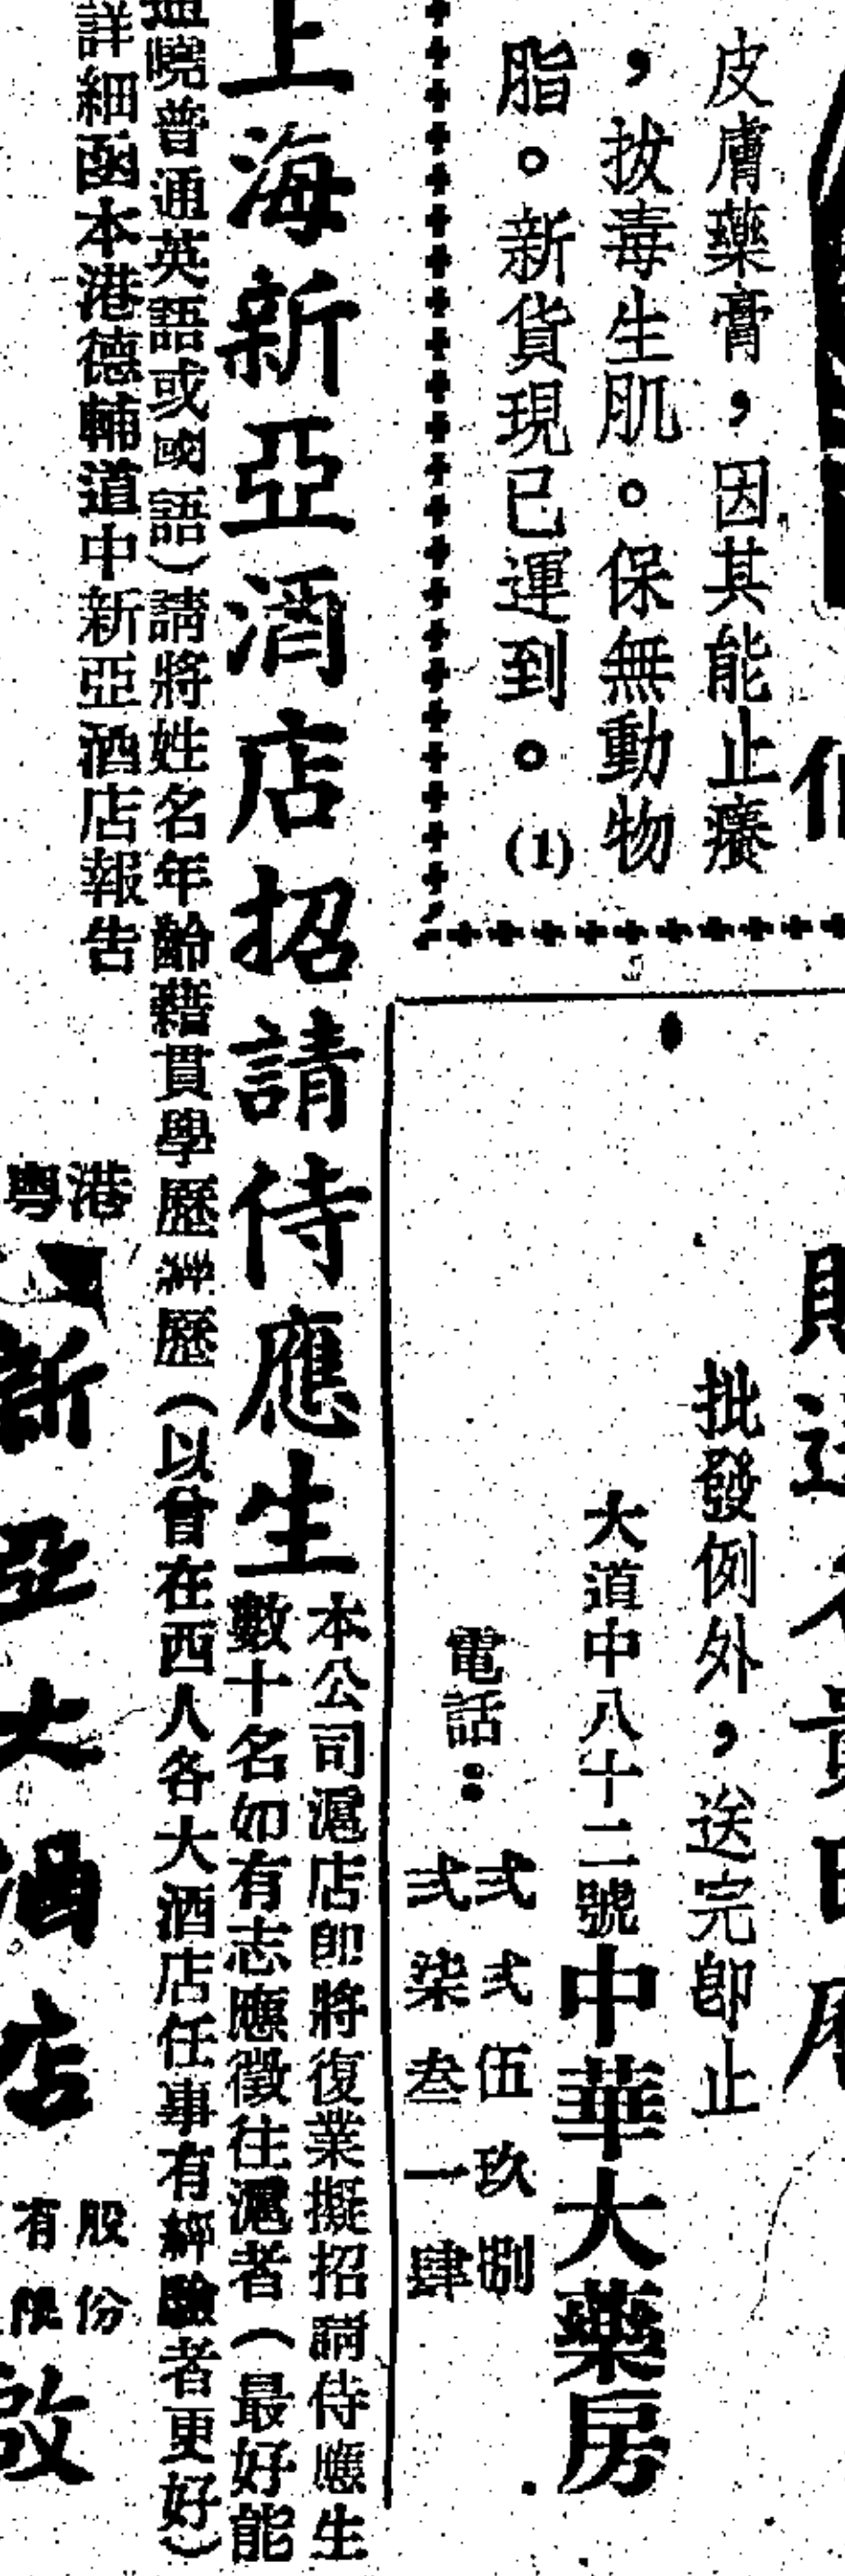 皮膚藥膏，因其能止癢
，拔毒生肌。保無動物
脂。新貨現已運到。(1)
批發例外，送完即止
大道中八十二號中華大藥房
電話：
弍弍伍玖捌
弍柒叁一肆
上海新亞酒店招請侍應生
本公司滬店即將復業擬招請侍應生
數十名如有志應徵往滬者（最好能
通曉普通英語或國語）請將姓名年齡藉貫學歷經歷（以曾在西人各大酒店任事有經驗者更好）
詳細函本港德輔道中新亞酒店報告
港
粵
新亞大酒店
股份
有限
啟